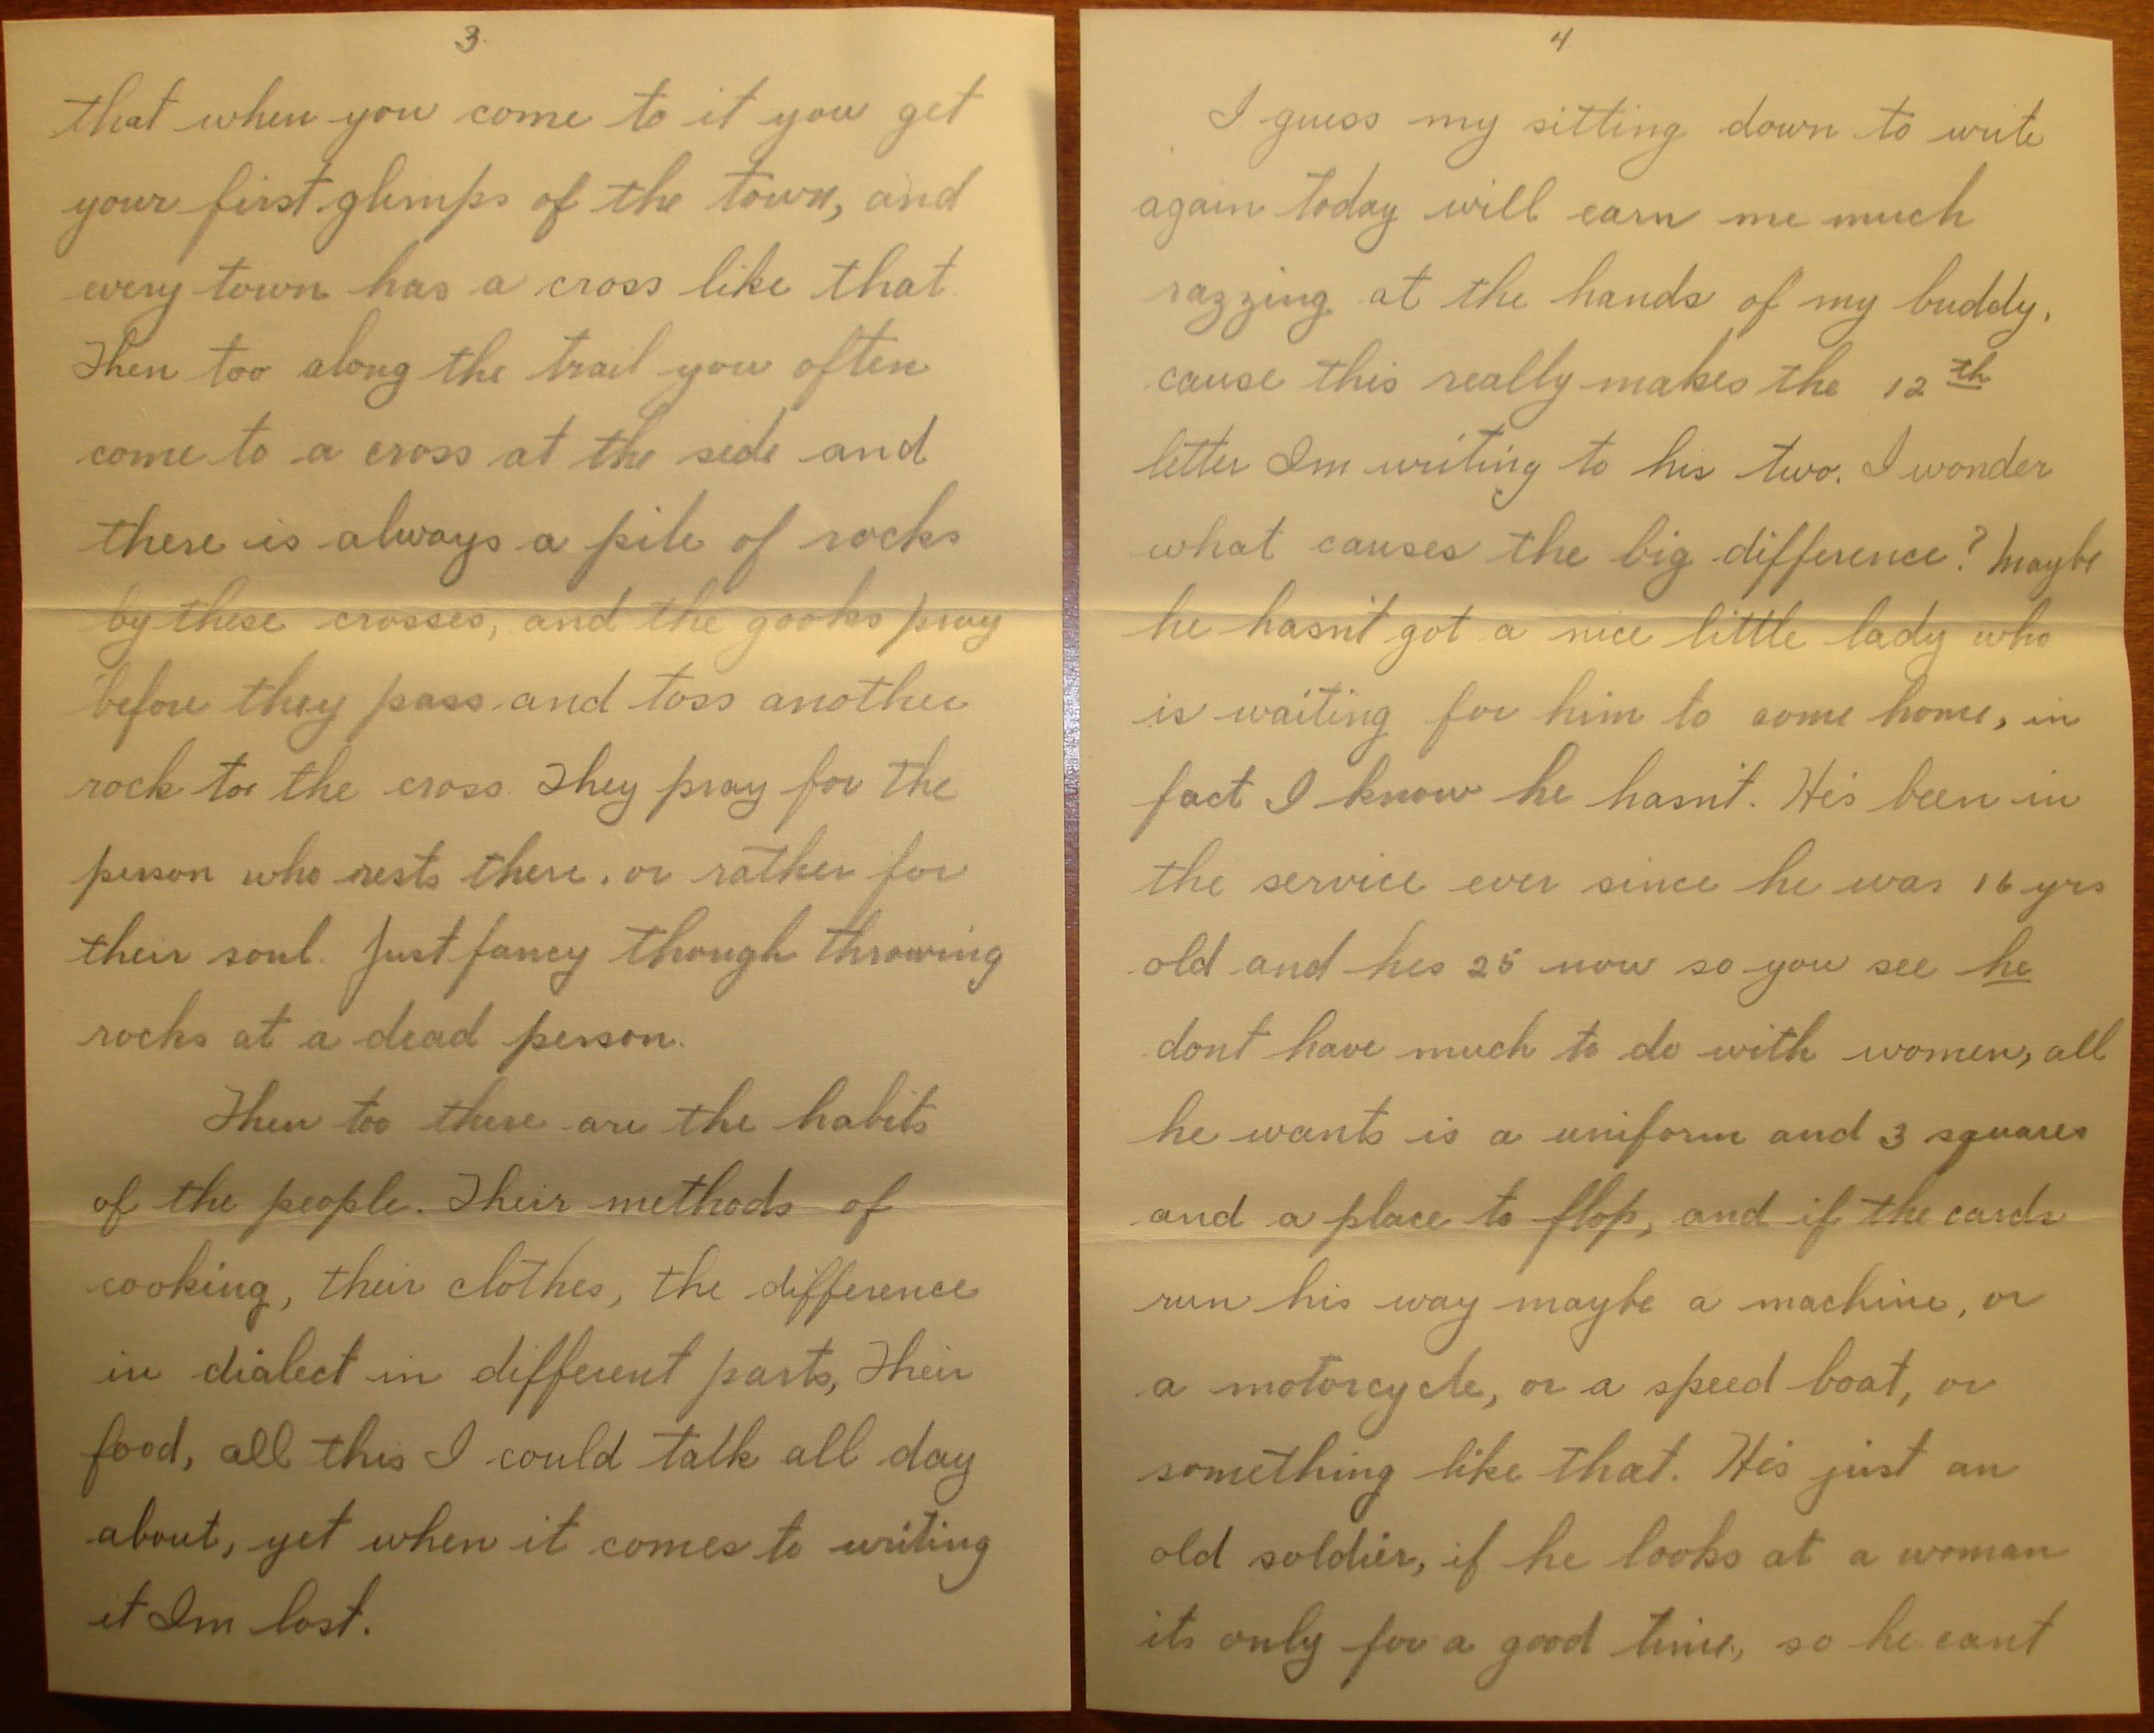 3
that when you come to it you get
your first glimps of the town, and
every town has a cross like that.
Then too along the trail you often
come to a cross at the side and
there is always a pile of rocks
by these crosses, and the gooks pray
before they pass and toss another
rock to the cross. They pray for the
person who rests there. or rather for
their soul. Just fancy though throwing
rocks at a dead person.
Then too there are the habits
of the people. Their methods of
cooking, their clothes, the difference
in dialect in different parts, Their
food, all this I could talk all day
about, yet when it comes to writing
it Im lost.
4
I guess my sitting down to write
again today will earn me much
razzing at the hands of my buddy.
cause this really makes the 12th
letter Im writing to his two. I wonder
what causes the big difference? Maybe
he hasn't got a nice little lady who
is waiting for him to come home, in
fact I know he hasn't. He's been in
the service ever since he was 16 yrs
old and hes 25 now so you see he
dont have much to do with women, all
he wants is a uniform and 3 squares
and a place to flop, and if the cards
run his way maybe a machine, or
a motorcycle, or a speed boat, or
something like that. He's just an
old soldier, if he looks at a woman
its only for a good time, so he cant